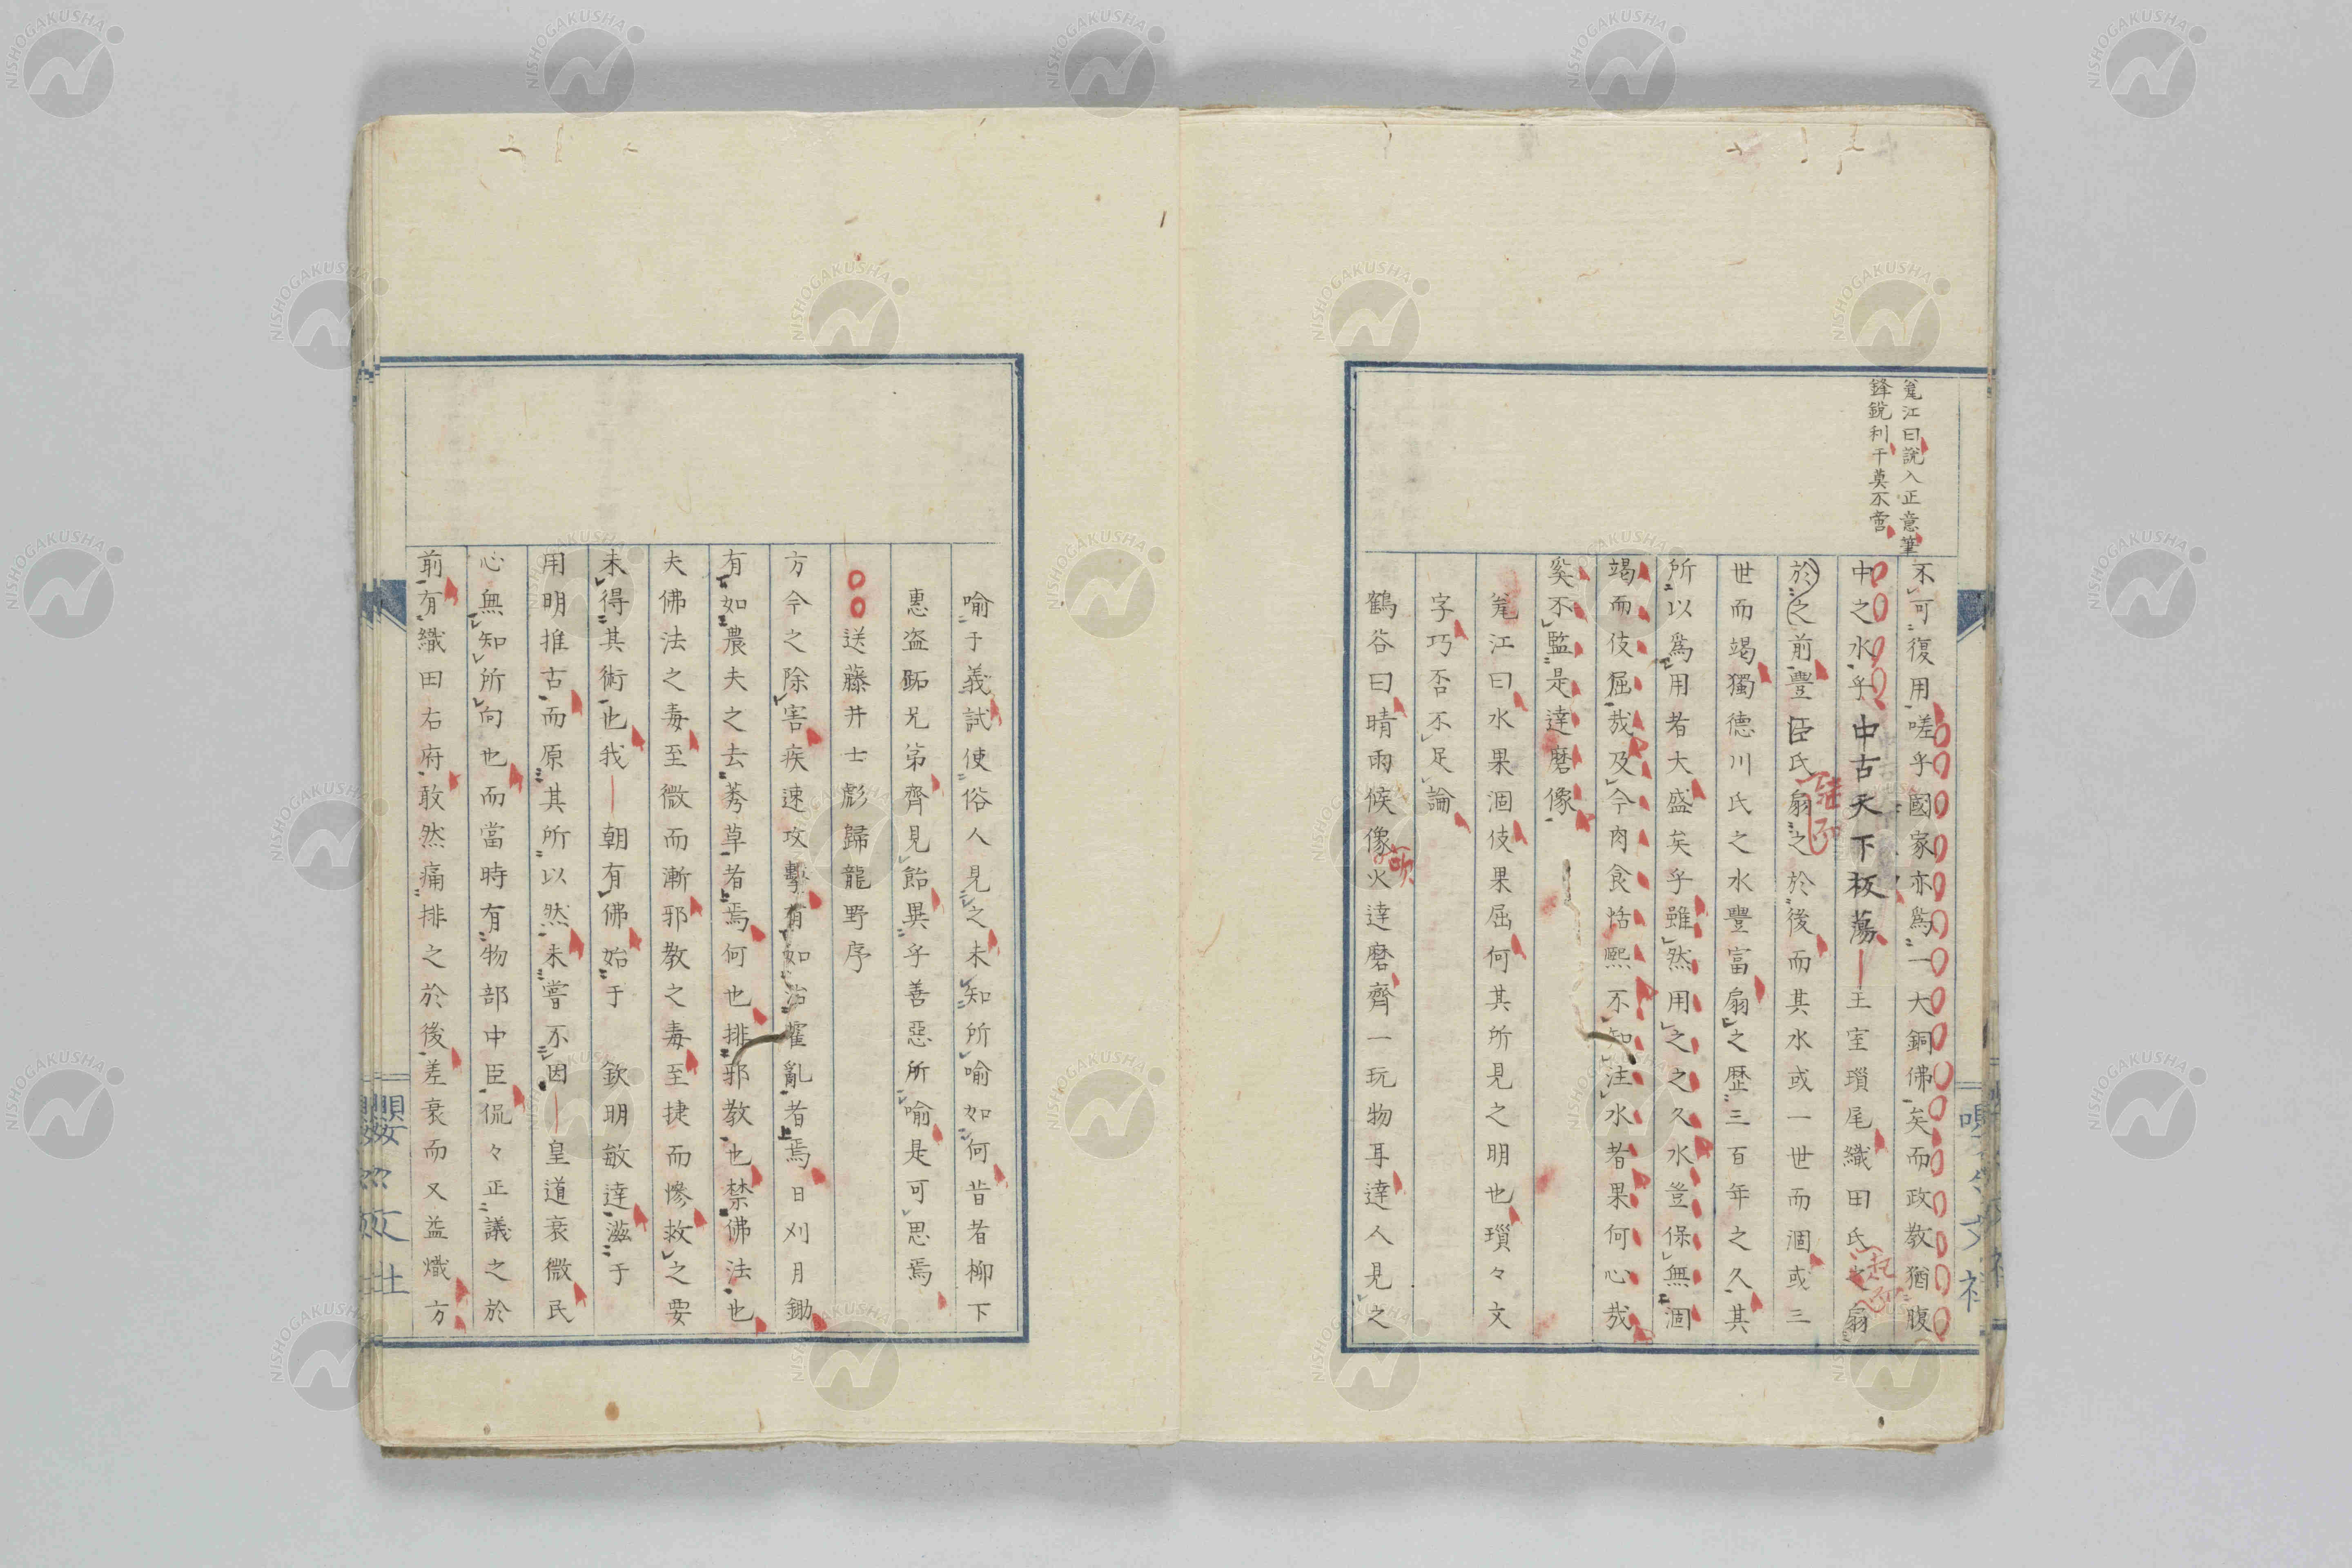 毚江曰說入正意筆
鋒銳利干莫不啻
不可復用嗟乎國家亦爲一大銅佛矣而政教猶腹
中之水乎中古天下板蕩王室瑣尾織田氏之扇
起而
於之前豐臣氏扇之於後而其水或一世而涸或三
世而竭獨德川氏之水豐富扇之歷三百年之久其
所以爲用者大盛矣乎雖然用之之久水豈保無涸
竭而伎屈哉及今肉食恬熙不知注水者果何心哉
奚不監是達磨像
毚江曰水果涸伎果屈何其所見之明也瑣々文
字巧否不足論
鶴谷曰晴雨候像火達磨齊一玩物耳達人見之
喻于義試使俗人見之未知所喻如何昔者柳下
惠盗跖兄弟齊見飴異乎善惡所喻是可思焉
送藤井士彪歸龍野序
方今之除害疾速攻擊有如治霍亂者焉日刈月鋤
有如農夫之去莠草者焉何也排邪教也禁佛法也
夫佛法之毒至微而漸邪教之毒至捷而慘救之要
未得其術也我朝有佛始于 欽明敏達滋于
用明推古而原其所以然未嘗不因皇道衰微民
心無知所向也而當時有物部中臣侃々正議之於
前有織田右府敢然痛排之於後差衰而又益熾方
嚶々文社